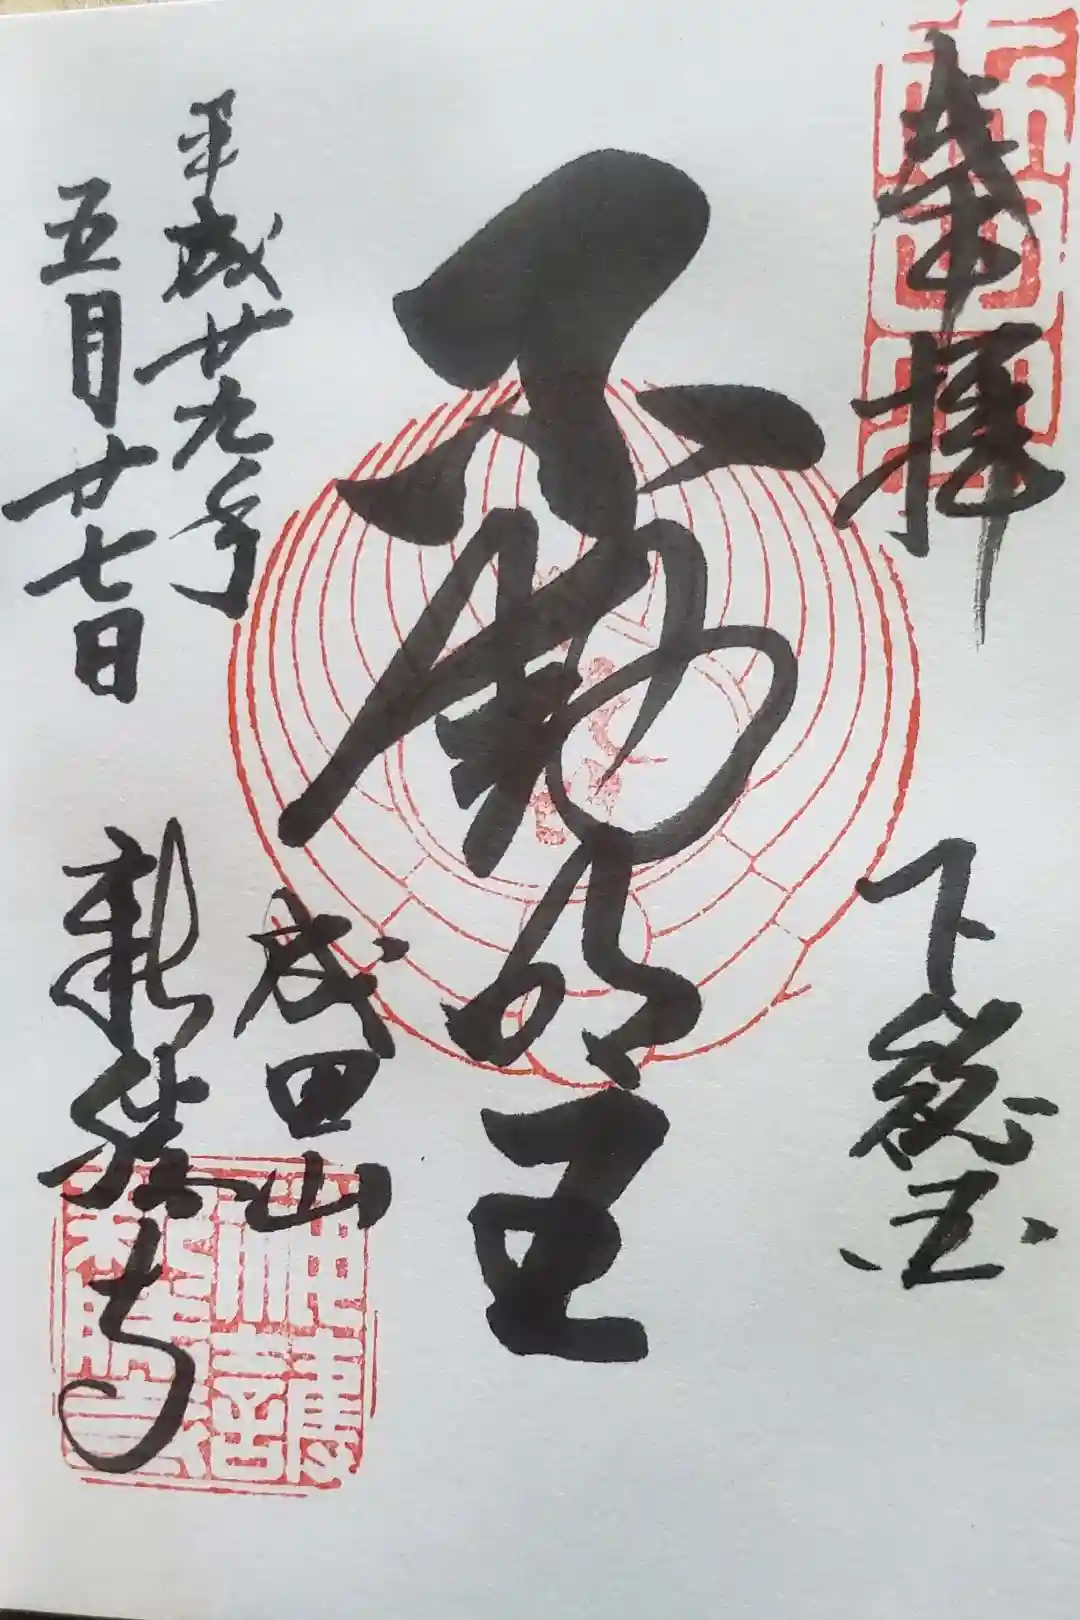 奉拝
下総国
不動明王
平成廿九年
五月廿七日
成田山
新勝寺